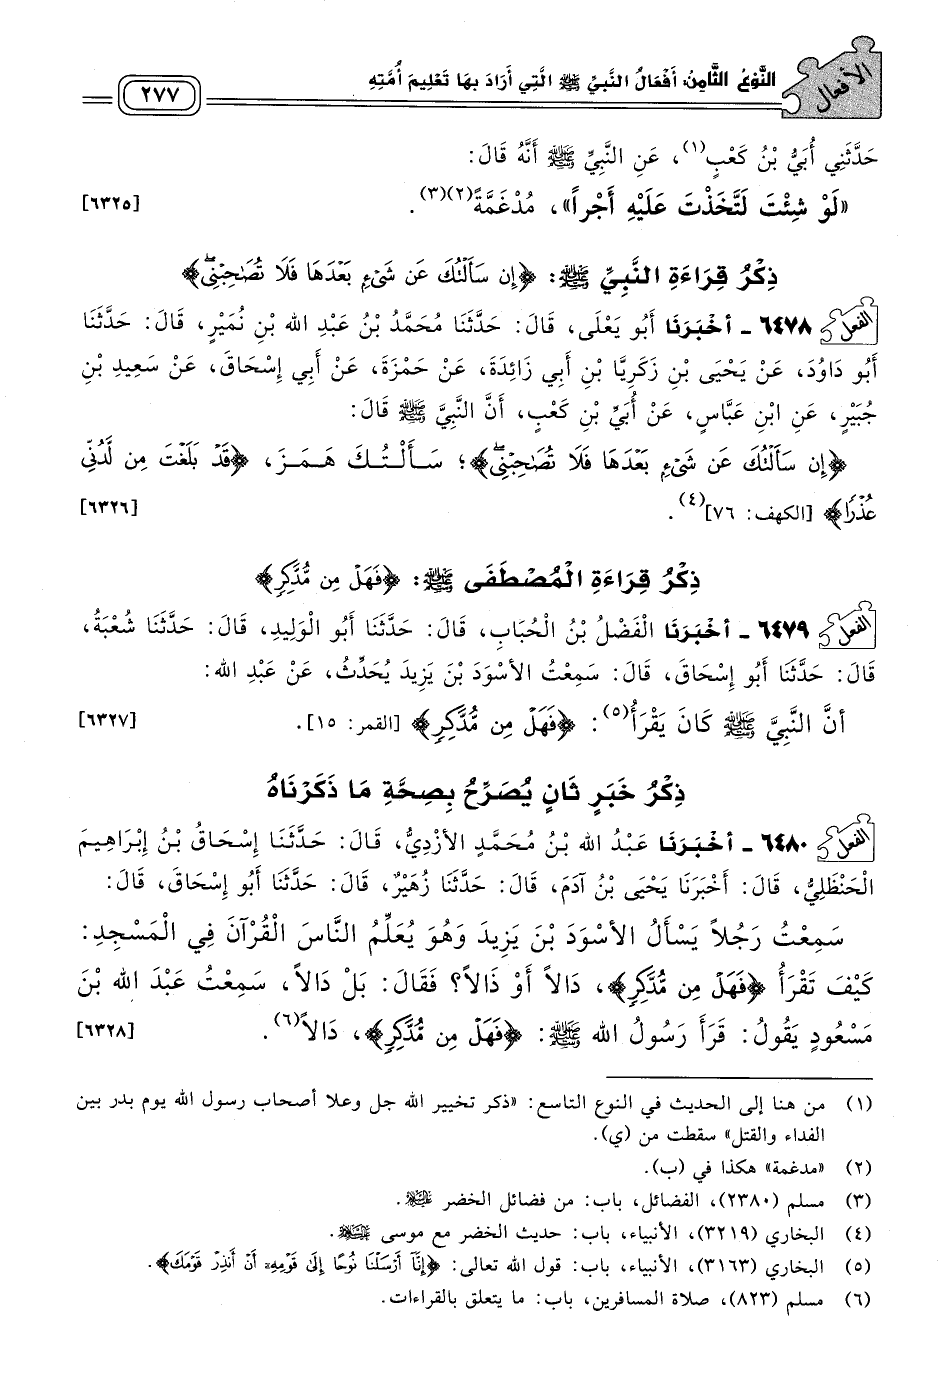 الأفعال
النَّوْعُ الثَّامِنُ: أَفْعَالُ النَّبِيِّ ﷺ الَّتِي أَرَادَ بِهَا تَعْلِيمَ أُمَّتِهِ
٢٧٧
حَدَّثَنِي أُبَيُّ بْنُ كَعْبٍ(١)، عَنِ النَّبِيِّ ﷺ أَنَّهُ قَالَ:
«لَوْ شِئْتَ لَتَّخَذْتَ عَلَيْهِ أَجْراً»، مُدْغَمَّةً(٢)(٣). [٦٣٢٥]
ذِكْرُ قِرَاءَةِ النَّبِيِّ ﷺ: ﴿إِن سَأَلْتُكَ عَن شَيْءٍ بَعْدَهَا فَلَا تُصَٰحِبْنِي﴾
الفعل ٦٤٧٨ ـ أخْبَرَنَا أَبُو يَعْلَى، قَالَ: حَدَّثَنَا مُحَمَّدُ بْنُ عَبْدِ الله بْنِ نُمَيْرٍ، قَالَ: حَدَّثَنَا
أَبُو دَاوُدَ، عَنْ يَحْيَى بْنِ زَكَرِيَّا بْنِ أَبِي زَائِدَةَ، عَنْ حَمْزَةَ، عَنْ أَبِي إِسْحَاقَ، عَنْ سَعِيدِ بْنِ
جُبَيْرٍ، عَنِ ابْنِ عَبَّاسٍ، عَنْ أُبَيِّ بْنِ كَعْبٍ، أَنَّ النَّبِيَّ ﷺ قَالَ:
﴿إِن سَأَلْتُكَ عَن شَيْءٍ بَعْدَهَا فَلَا تُصَٰحِبْنِي﴾؛ سَـأَلْـتُـكَ هَـمَـزَ، ﴿قَدْ بَلَغْتَ مِن لَّدُنِّي
عُذْرًا﴾ [الكهف: ٧٦](٤). [٦٣٢٦]
ذِكْرُ قِرَاءَةِ الْمُصْطَفَى ﷺ: ﴿فَهَلْ مِن مُّدَّكِرٍ﴾
الفعل ٦٤٧٩ ـ أخْبَرَنَا الْفَضْلُ بْنُ الْحُبَابِ، قَالَ: حَدَّثَنَا أَبُو الْوَلِيدِ، قَالَ: حَدَّثَنَا شُعْبَةُ،
قَالَ: حَدَّثَنَا أَبُو إِسْحَاقَ، قَالَ: سَمِعْتُ الأسْوَدَ بْنَ يَزِيدَ يُحَدِّثُ، عَنْ عَبْدِ الله:
أنَّ النَّبِيَّ ﷺ كَانَ يَقْرَأُ(٥): ﴿فَهَلْ مِن مُّدَّكِرٍ﴾ [القمر: ١٥]. [٦٣٢٧]
ذِكْرُ خَبَرٍ ثَانٍ يُصَرِّحُ بِصِحَّةِ مَا ذَكَرْنَاهُ
الفعل ٦٤٨٠ ـ أخْبَرَنَا عَبْدُ الله بْنُ مُحَمَّدٍ الأزْدِيُّ، قَالَ: حَدَّثَنَا إِسْحَاقُ بْنُ إِبْرَاهِيمَ
الْحَنْظَلِيُّ، قَالَ: أَخْبَرَنَا يَحْيَى بْنُ آدَمَ، قَالَ: حَدَّثَنَا زُهَيْرٌ، قَالَ: حَدَّثَنَا أَبُو إِسْحَاقَ، قَالَ:
سَمِعْتُ رَجُلاً يَسْأَلُ الأسْوَدَ بْنَ يَزِيدَ وَهُوَ يُعَلِّمُ النَّاسَ الْقُرْآنَ فِي الْمَسْجِدِ:
كَيْفَ تَقْرَأُ ﴿فَهَلْ مِن مُّدَّكِرٍ﴾، دَالاً أَوْ ذَالاً؟ فَقَالَ: بَلْ دَالاً، سَمِعْتُ عَبْدَ الله بْنَ
مَسْعُودٍ يَقُولُ: قَرَأَ رَسُولُ الله ﷺ: ﴿فَهَلْ مِن مُّدَّكِرٍ﴾، دَالاً(٦). [٦٣٢٨]
(١) من هنا إلى الحديث في النوع التاسع: «ذكر تخيير الله جل وعلا أصحاب رسول الله يوم بدر بين
الفداء والقتل» سقطت من (ي).
(٢) «مدغمة» هكذا في (ب).
(٣) مسلم (٢٣٨٠)، الفضائل، باب: من فضائل الخضر عليه السلام.
(٤) البخاري (٣٢١٩)، الأنبياء، باب: حديث الخضر مع موسى عليه السلام.
(٥) البخاري (٣١٦٣)، الأنبياء، باب: قول الله تعالى: ﴿إِنَّآ أَرْسَلْنَا نُوحًا إِلَىٰ قَوْمِهِۦٓ أَنْ أَنذِرْ قَوْمَكَ﴾.
(٦) مسلم (٨٢٣)، صلاة المسافرين، باب: ما يتعلق بالقراءات.